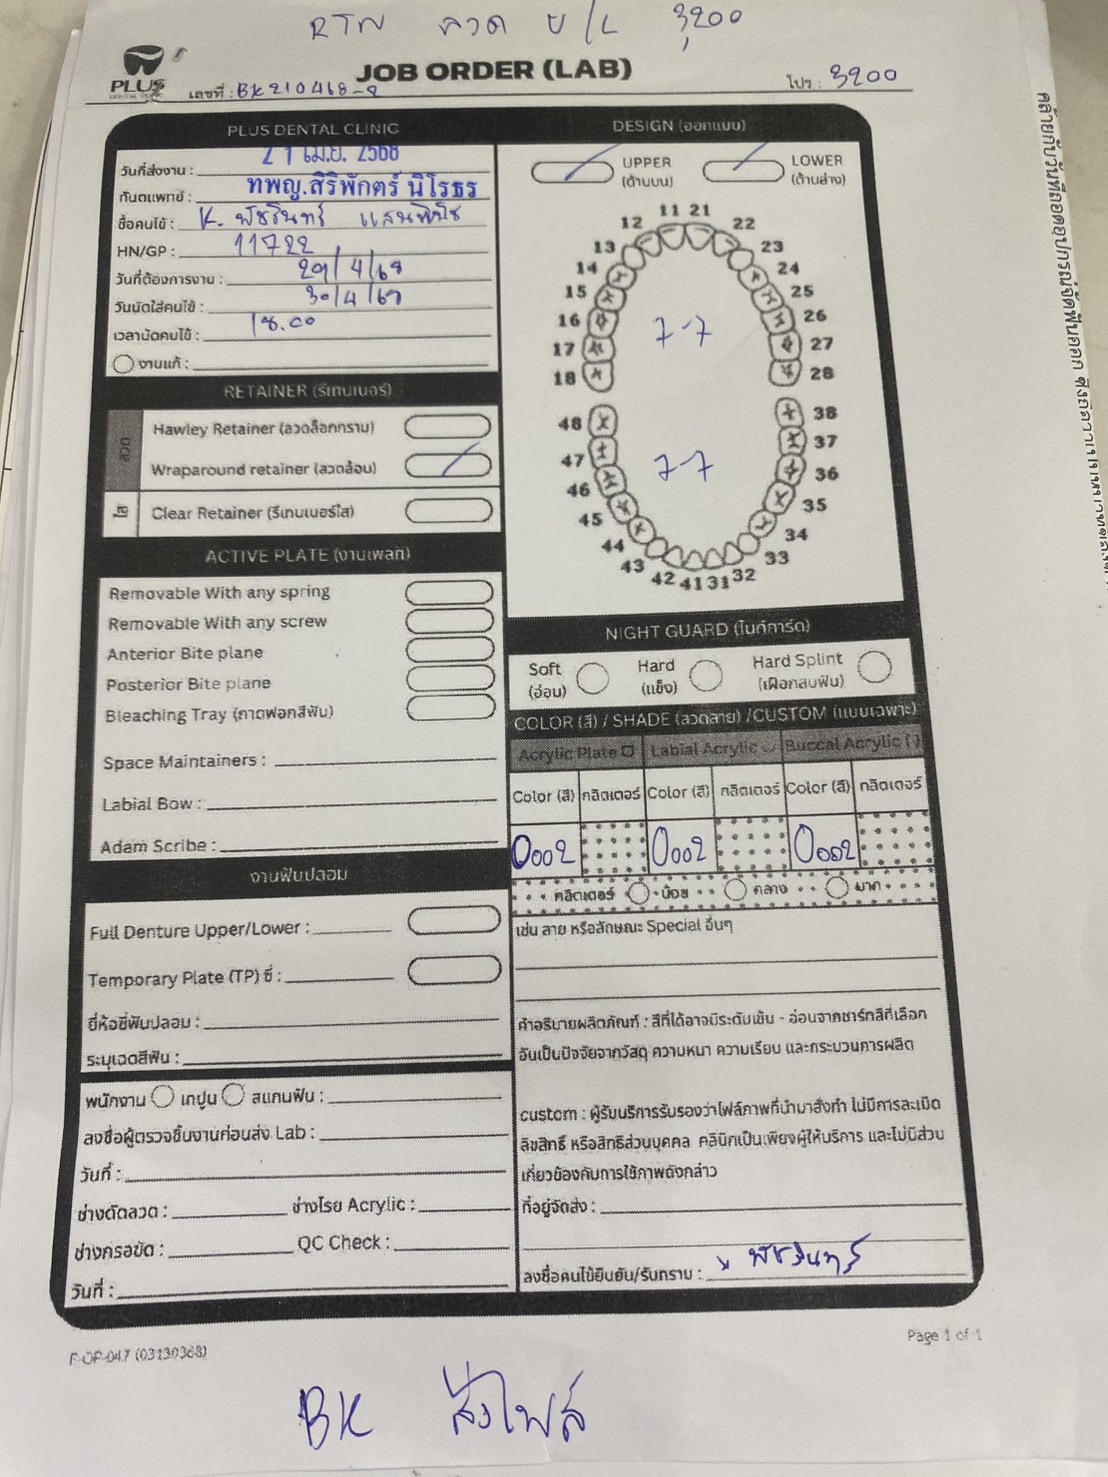 RTN ลวด U/L 3,200
PLUS
DENTAL CLINIC
JOB ORDER (LAB)
เลขที่ : BK210468-2
โปร : 3200
PLUS DENTAL CLINIC
วันที่ส่งงาน : 21 เม.ย. 2568
ทันตแพทย์ : ทพญ.สิริพักตร์ นิโรธร
ชื่อคนไข้ : K. พัชรินทร์
HN/GP : 11722
วันที่ต้องการงาน : 29/4/68
วันนัดใส่คนไข้ : 30/4/68
เวลานัดคนไข้ : 18.00
งานแก้ :
RETAINER (รีเทนเนอร์)
ลวด
Hawley Retainer (ลวดล็อกกราม)
Wraparound retainer (ลวดล้อม)
ใส
Clear Retainer (รีเทนเนอร์ใส)
ACTIVE PLATE (งานเพลท)
Removable With any spring
Removable With any screw
Anterior Bite plane
Posterior Bite plane
Bleaching Tray (ถาดฟอกสีฟัน)
Space Maintainers :
Labial Bow :
Adam Scribe :
งานฟันปลอม
Full Denture Upper/Lower :
Temporary Plate (TP) ซี่ :
ยี่ห้อซี่ฟันปลอม :
ระบุเฉดสีฟัน :
พนักงาน เทปูน สแกนฟัน :
ลงชื่อผู้ตรวจชิ้นงานก่อนส่ง Lab :
วันที่ :
ช่างดัดลวด : ช่างโรย Acrylic :
ช่างกรอขัด : QC Check :
วันที่ :
DESIGN (ออกแบบ)
UPPER
(ด้านบน)
LOWER
(ด้านล่าง)
11 21
12 22
13 23
14 24
15 25
16 26
17 27
18 28
7-7
48 38
47 37
46 36
45 35
44 34
43 33
42 41 31 32
7-7
NIGHT GUARD (ไนท์การ์ด)
Soft
(อ่อน)
Hard
(แข็ง)
Hard Splint
(เฝือกสบฟัน)
COLOR (สี) / SHADE (ลวดลาย) /CUSTOM (แบบเฉพาะ)
Acrylic Plate Labial Acrylic Buccal Acrylic ( )
Color (สี) กลิตเตอร์ Color (สี) กลิตเตอร์ Color (สี) กลิตเตอร์
0002 0002 0002
กลิตเตอร์ น้อย กลาง มาก
เช่น ลาย หรือลักษณะ Special อื่นๆ
คำอธิบายผลิตภัณฑ์ : สีที่ได้อาจมีระดับเข้ม - อ่อนจากชาร์ทสีที่เลือก
อันเป็นปัจจัยจากวัสดุ ความหนา ความเรียบ และกระบวนการผลิต
custom : ผู้รับบริการรับรองว่าไฟล์ภาพที่นำมาสั่งทำ ไม่มีการละเมิด
ลิขสิทธิ์ หรือสิทธิส่วนบุคคล คลินิกเป็นเพียงผู้ให้บริการ และไม่มีส่วน
เกี่ยวข้องกับการใช้ภาพดังกล่าว
ที่อยู่จัดส่ง :
ลงชื่อคนไข้ยืนยัน/รับทราบ : x พัชรินทร์
F-OP-047 (03130368)
Page 1 of 1
BK ส่งไฟล์